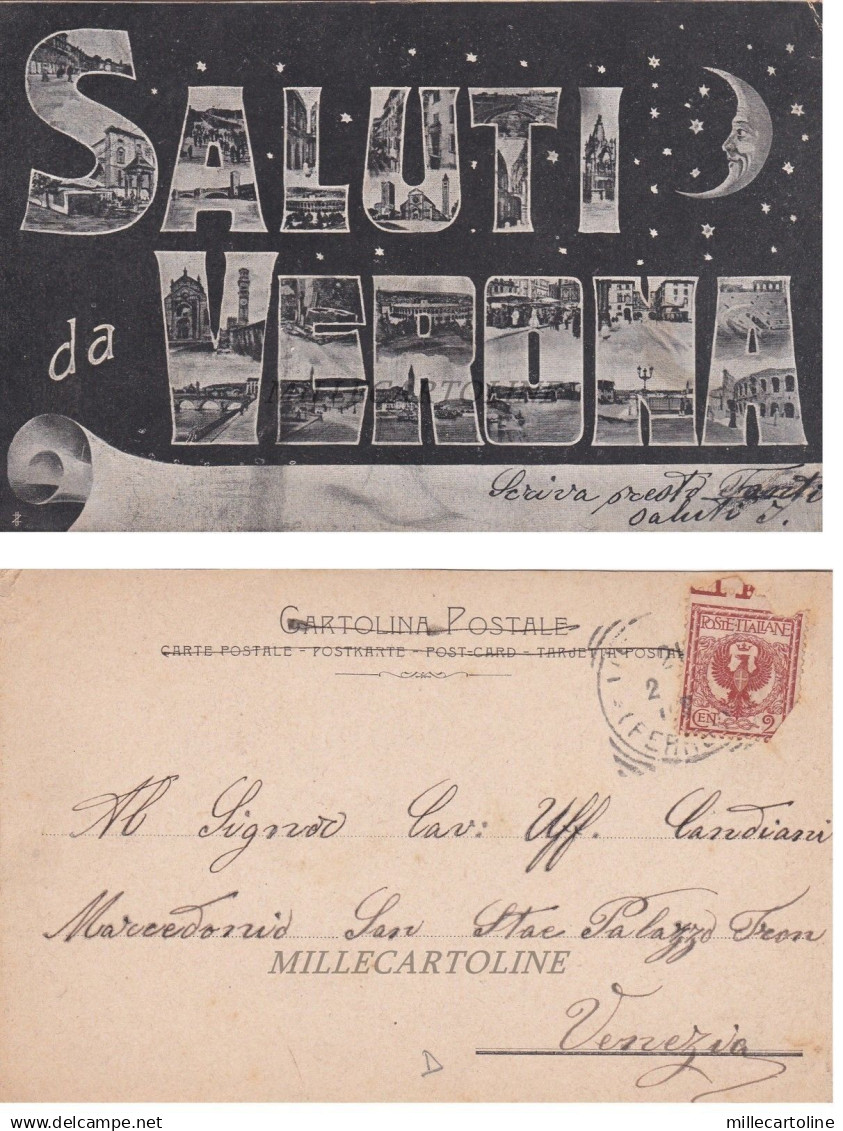 SALUTI
da VERONA
MILLECARTOLINE
Scriva presto Tanti
saluti J.
CARTOLINA POSTALE
CARTE POSTALE - POSTKARTE - POST-CARD - TARJETTA POSTAL
POSTE ITALIANE
CEN. 2
(FERRO
Al Signor Cav: Uff. Candiani
Marcedonio San Stae Palazzo Tron
MILLECARTOLINE
Venezia
D
www.delcampe.net
millecartoline